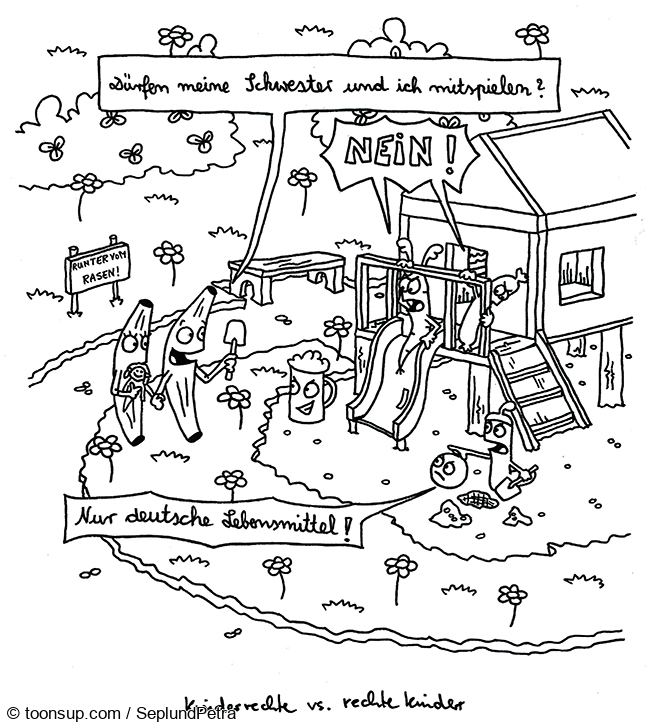 Dürfen meine Schwester und ich mitspielen?
NEIN!
RUNTER VOM
RASEN!
Nur deutsche Lebensmittel!
Kinderrechte vs. rechte Kinder
© toonsup.com / SeplundPetra